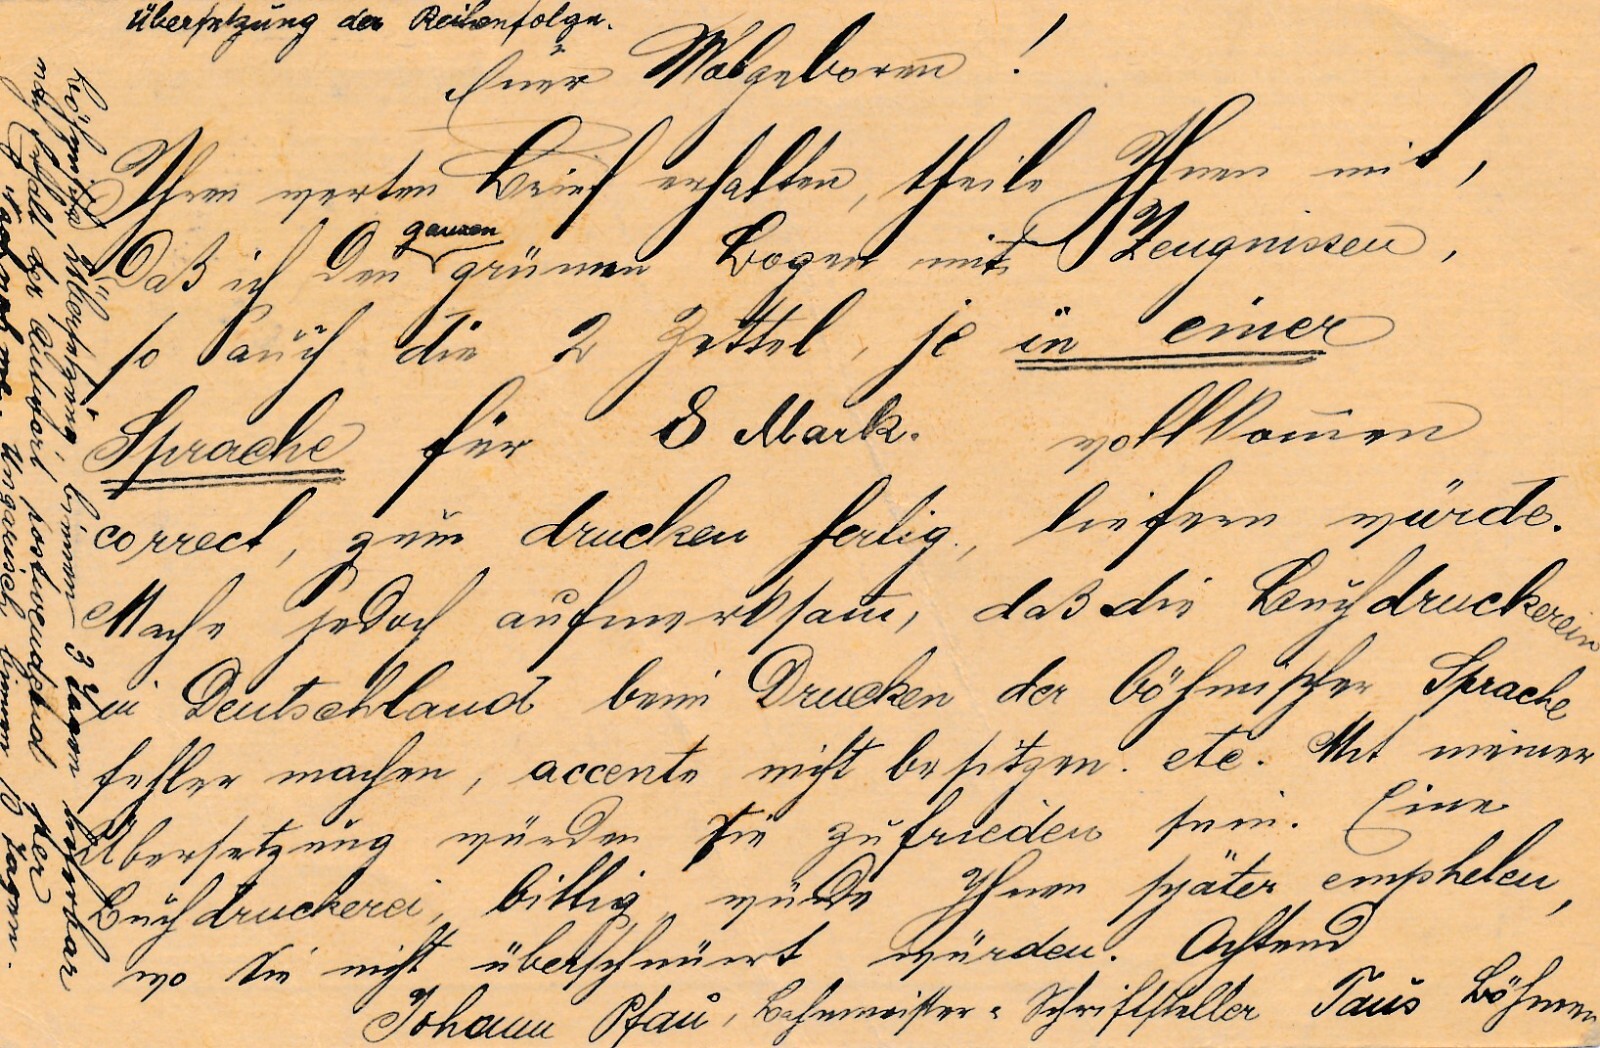 Übersetzung der Reihenfolge.
Euer Wolgeboren!
Ihren werten Brief erhalten, theile Ihnen mit,
Daß ich den ganzen grünen Bogen mit Zeugnissen,
so auch die 2 Zettel, je in einer
Sprache für 8 Mark. vollkom̄en
correct, zum drucken fertig, liefern würde.
Mache jedoch aufmerksam, daß die Buchdruckerein
in Deutschland beim Drucken der böhmischen Sprache
fehler machen, accente nicht besitzen. etc. Mit meiner
Übersetzung würden Sie zufrieden sein. Eine
Buchdruckerei, billig, würde Ihnen später emphelen,
wo Sie nicht überschmiert würden. Achtend
Johann Pfau, Bahnmeister - Schriftsteller Taus Böhmen
böhmische Übersetzung binnen 3 Tagen lieferbar
nach Erhalt der Antwort, postwendend per
Nachnahme. Ungarisch binnen 10 Tagen.